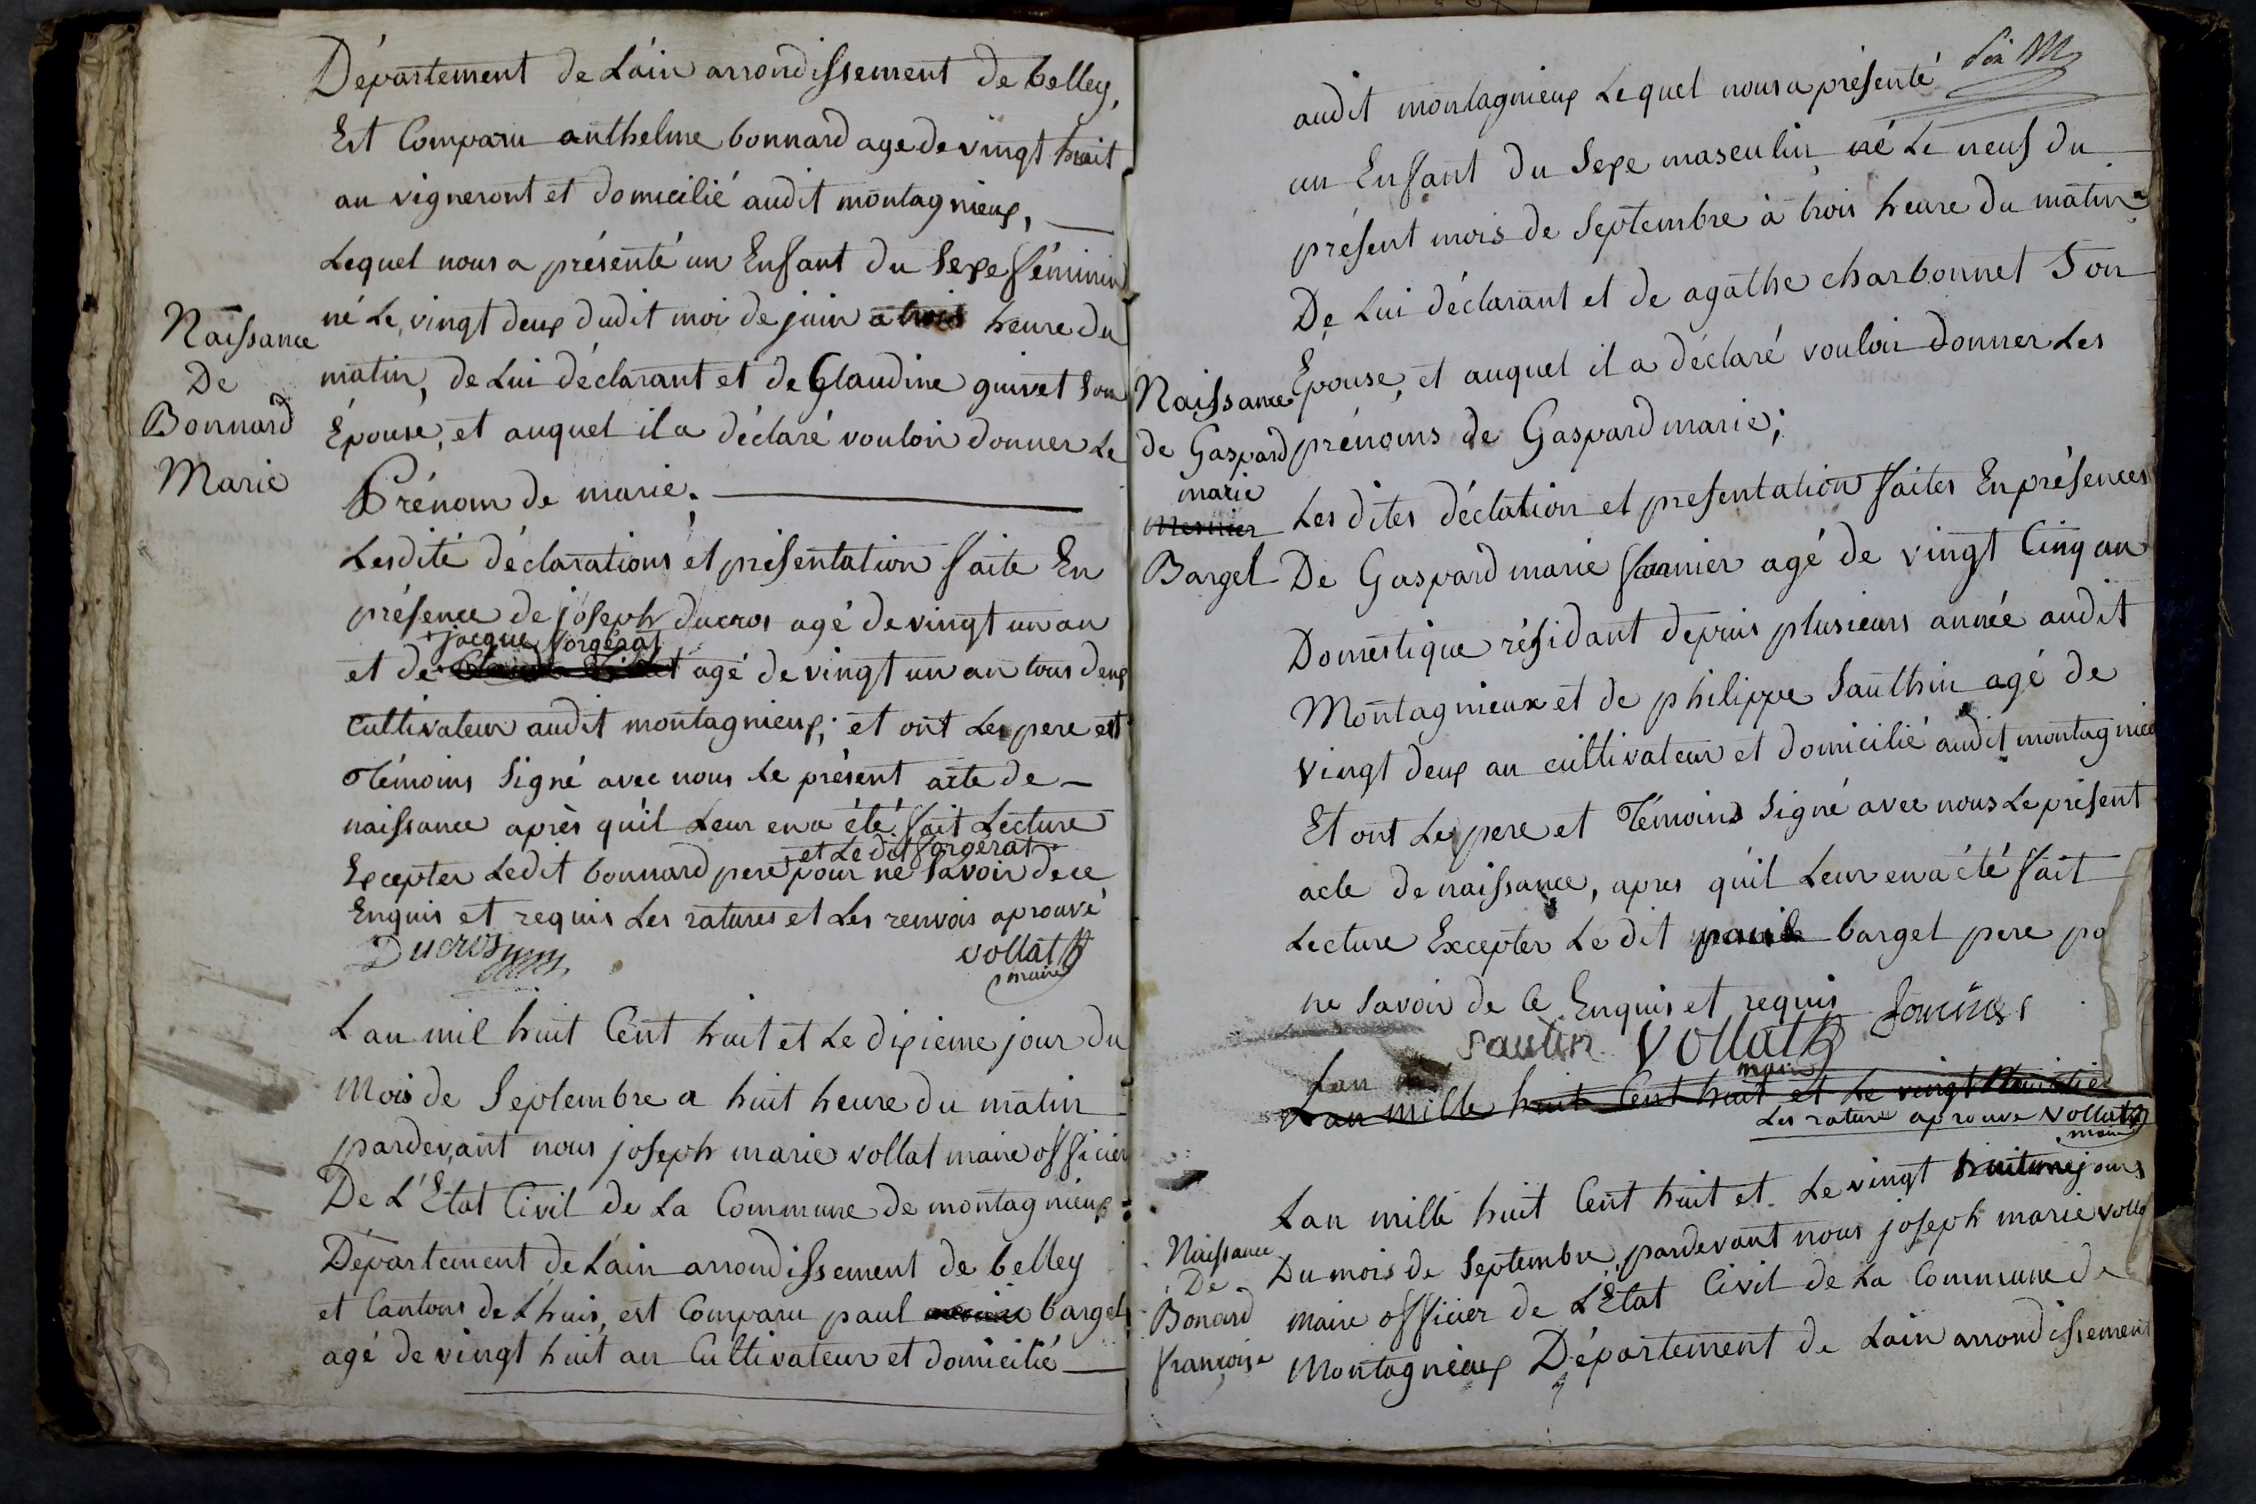 Département de Láin arrondissement de belley,
Est Comparu anthelme bonnard age de vingt huit
an vigneront et domicilié audit montagnieux,
Lequel nous a présenté un Enfant du Sexe féminin
né Le, vingt deux dudit moi de juin a trois heure du
matin, de Lui déclarant et de Glaudine guivet Son
Épouse, et auquel il a déclaré vouloir donner Le
Prénom de marie.
Naissance
De
Bonnard
Marie
Lesdité déclarations et présentation faite En
présence de joseph ducros agé de vingt un an
+jacque forgérat
et de agé de vingt un an tous deux
cultivateur audit montagnieux; et ont Les pere et
Témoins Signé avec nous Le présent acte de
naissance après qu'il Leur en a été fait Lecture
+et Le dit forgerat
Excepter Ledit bonnard pere + pour ne Savoir de ce
Enquis et requis Les ratures et Les renvois aprouvé
Ducros vollat
maire
Lan mil huit Cent huit et Le dixieme jour du
Mois de Septembre a huit heure du matin
pardevant nous joseph marie vollat maire officier
De L'Etat Civil de La Commune de montagnieux
Département de Láin arrondissement de belley
et Cantons de L'huis, est Comparu paul bargel
agé de vingt huit an Cultivateur et domicilié
audit montagnieux Lequel nous a présenté
un Enfant du Sexe masculin né Le neuf du
présent mois de Septembre à trois heure du matin
De Lui déclarant et de agathe charbonnet Son
Épouse, et auquel il a déclaré vouloir donner Les
prénoms de Gaspard marie;
Naissance
de Gaspard
marie
Mernier
Bargel
Les dites déclation et presentation faites En présences
De Gaspard marie agé de vingt Cinq an
Domestique résidant depuis plusieurs année audit
Montagnieux et de philippe Santhin agé de
vingt deux an cultivateur et domicilié audit montagnieu
Et ont Les pere et Témoins Signé avec nous Le présent
acte de naissance, apres qu'il Leur en a été fait
Lecture Excepter Le dit paul bargel pere po
ne Savoir de Ce Enquis et requis
Sautin Vollat
maire
Lan
Lan mille huit Cent huit et Le vingt
Les rature aprouve Vollat
maire
Lan mille huit Cent huit et Le vingt huitieme jours
Du mois de Septembre, pardevant nous joseph marie Volla
maire officier de L'Etat Civil de La Commune de
Montagnieux Département de Lain arrondissement
Naissance
De
Bonard
francoise